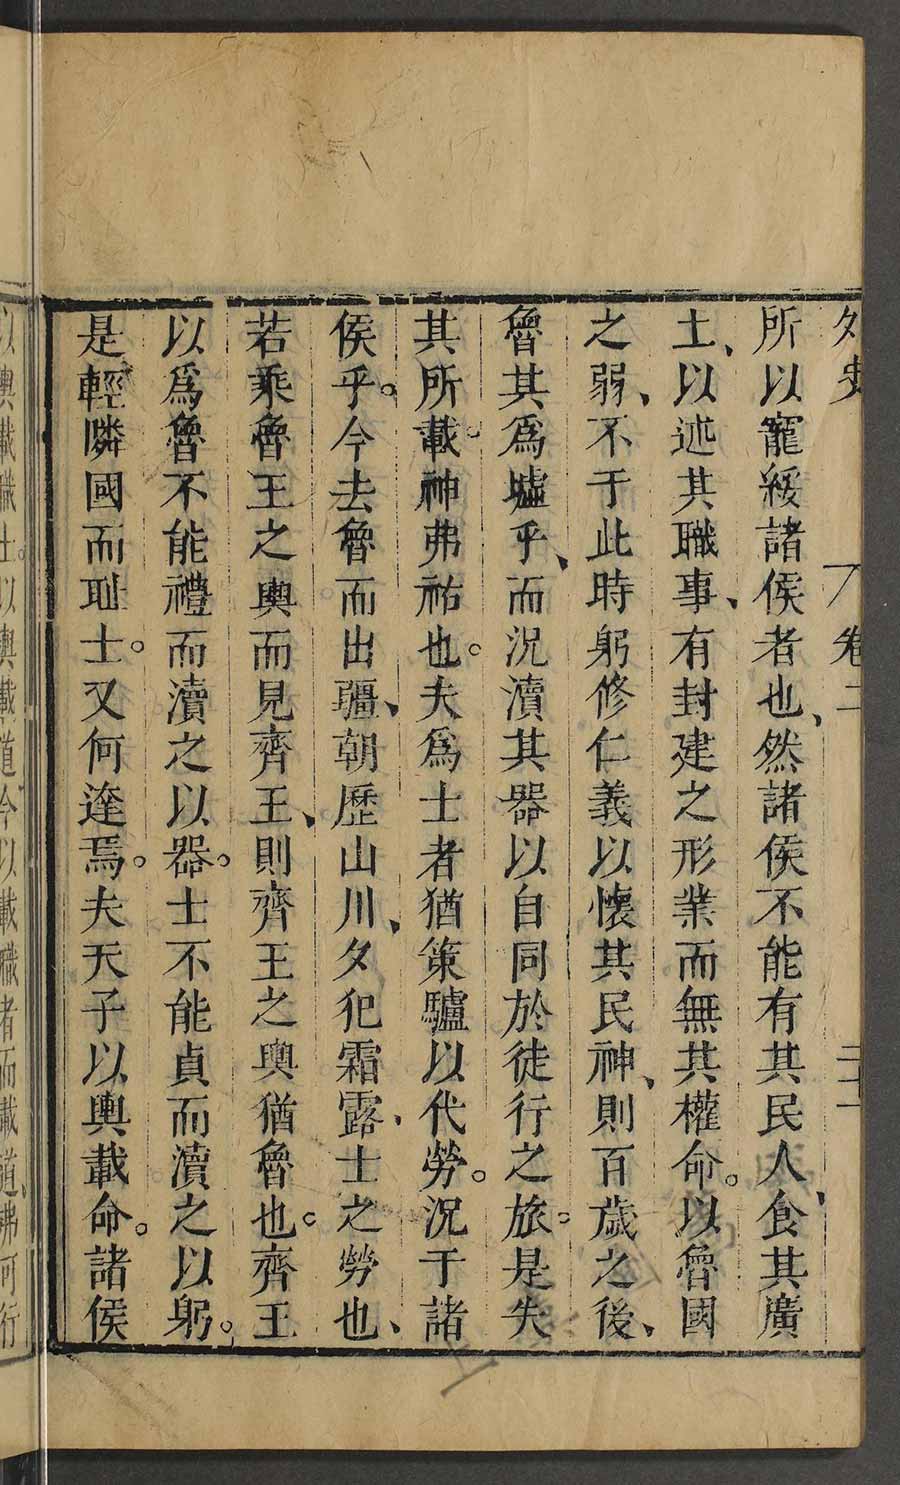 外史 卷二 二十一
所以寵綏諸侯者也、然諸侯不能有其民人、食其廣
土、以述其職事、有封建之形業而無其權命。以魯國
之弱、不于此時躬修仁義以懷其民神、則百歲之後、
魯其爲墟乎、而況瀆其器以自同於徒行之旅。是失
其所載。神弗祐也。夫爲士者猶策驢以代勞。況于諸
侯乎。今去魯而出疆、朝歷山川、夕犯霜露、士之勞也、
若乘魯王之輿而見齊王、則齊王之輿猶魯也。齊王
以爲魯不能禮而瀆之以器。士不能貞而瀆之以躬。
是輕隣國而耻士。又何逹焉。夫天子以輿載命。諸侯
以輿載職士。以輿載道今以載職者而載道、弗可行